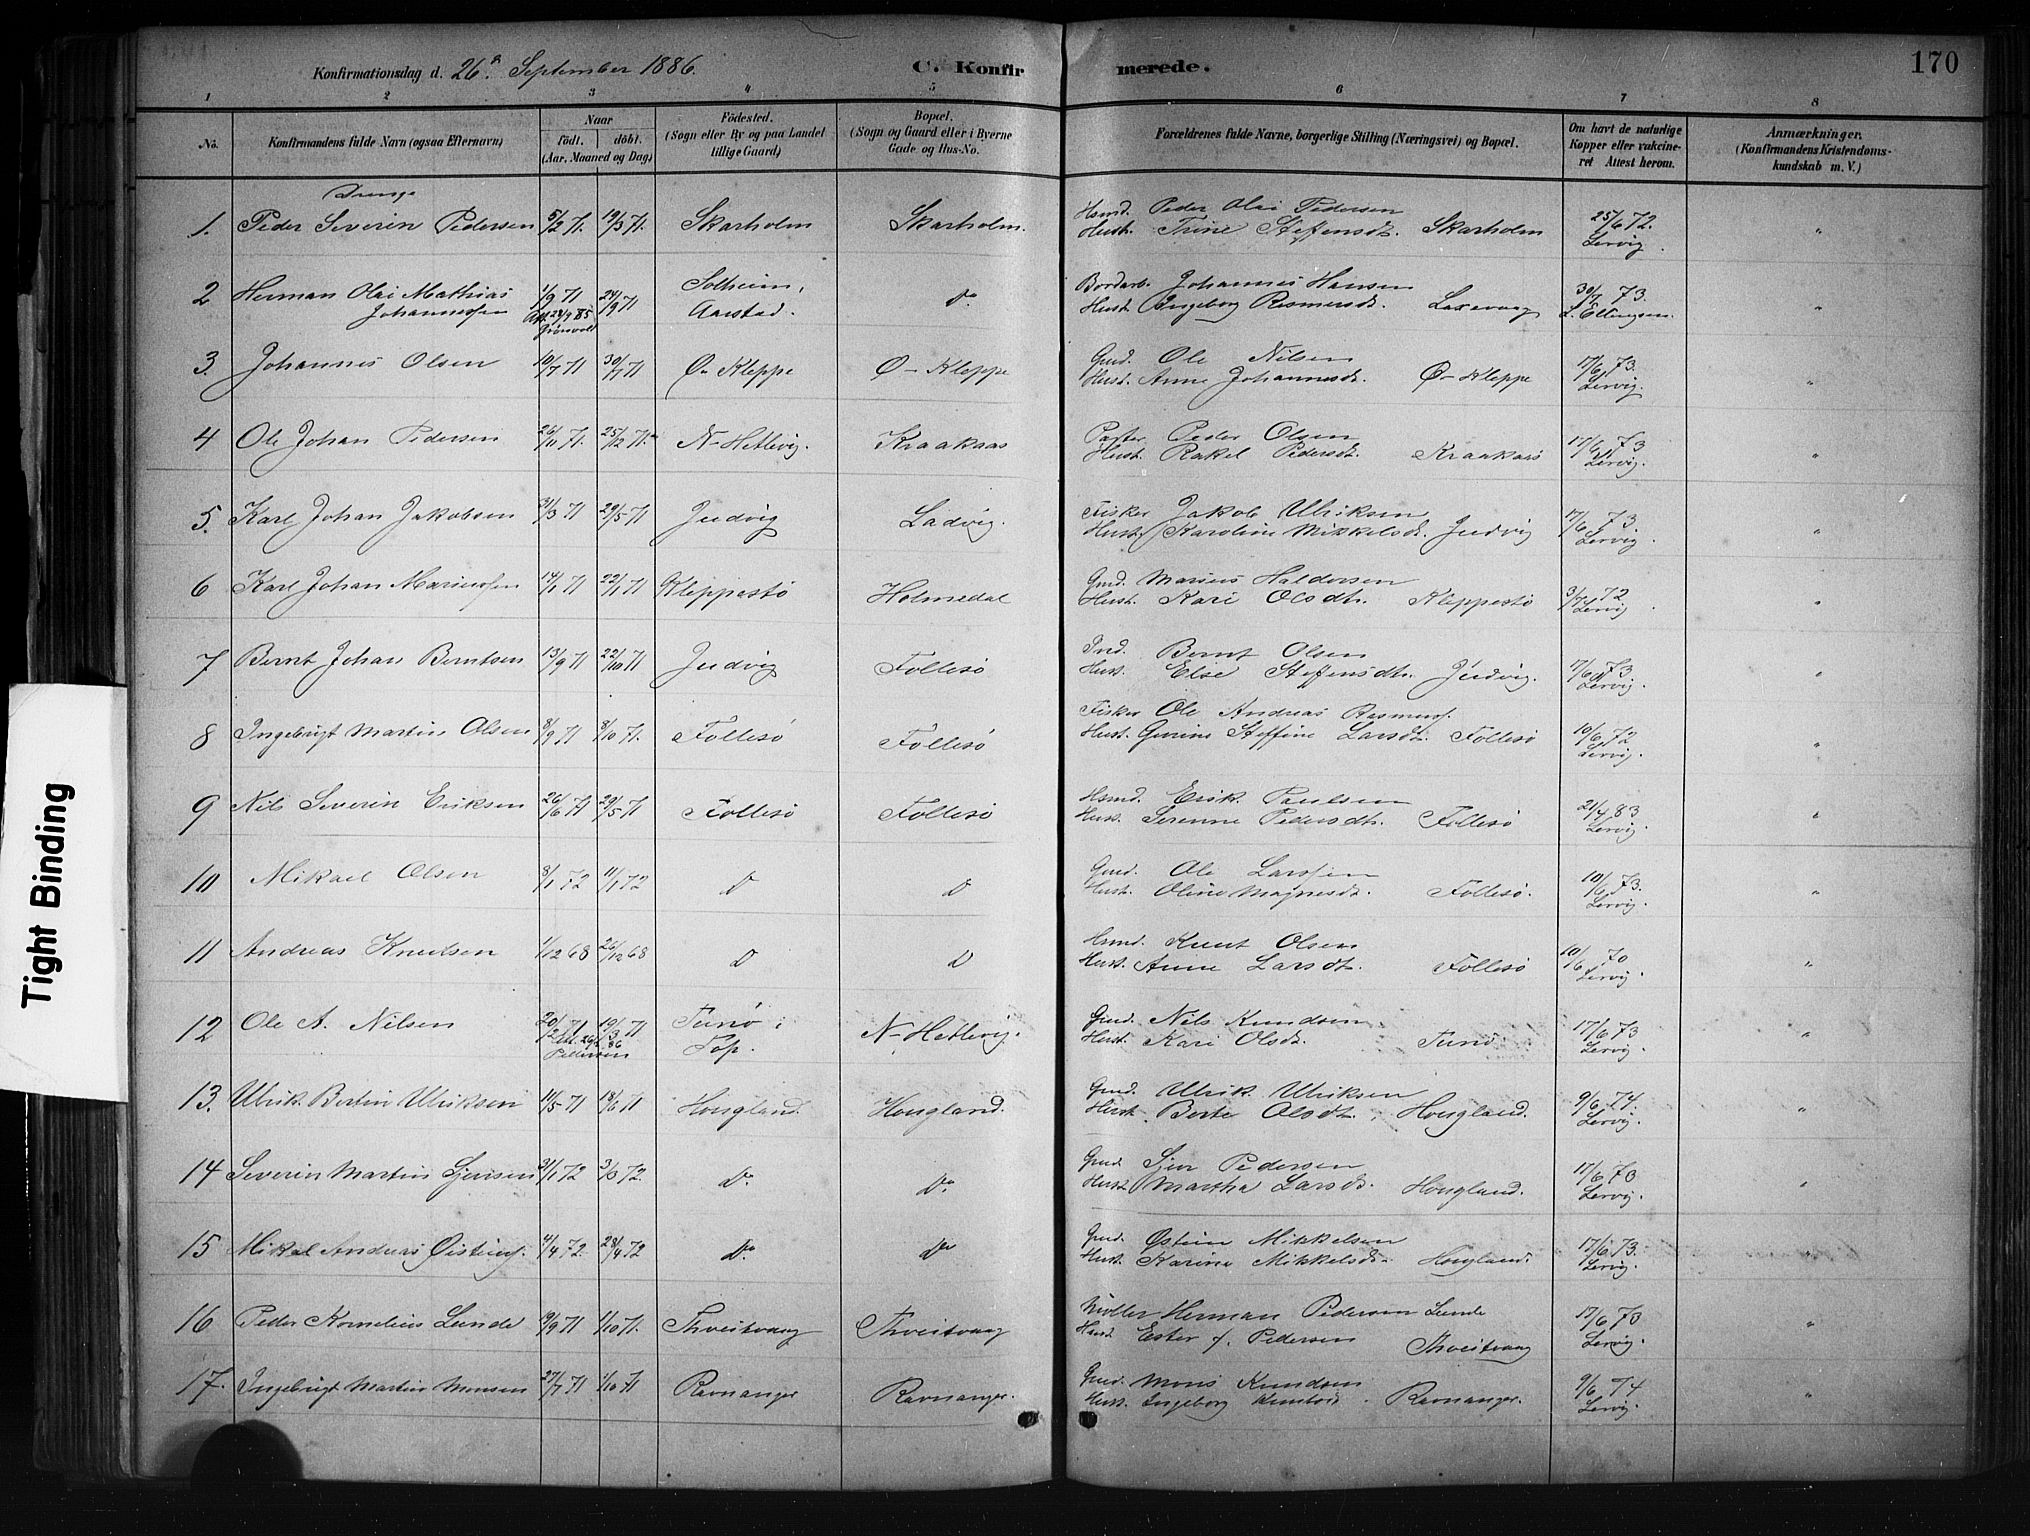 Konfirmationsdag d. 26de September 1886. C. Konfirmerede. 170
1 2 3 4 5 6 7 8
No. Konfirmandens fulde Navn (ogsaa Efternavn) Naar födt. döbt. (Aar, Maaned og Dag) Födested. (Sogn eller By og paa Landet tillige Gaard) Bopæl. (Sogn og Gaard eller i Byerne Gade og Hus-No. Forældrenes fulde Navne, borgerlige Stilling (Næringsvei) og Bopæl. Om havt de naturlige Kopper eller vakcineret Attest herom. Anmærkninger. (Konfirmandens Kristendomskundskab m. V.)
Drenge
1. Peder Severin Pedersen 5/2 71. 19/3 71. Skarholm Skarholm. Hsmd. Peder Olai Pedersen 25/6 72.
Hust. Trine Steffensdt. Skarholm Lervig "
2 Herman Olai Mathias 1/9 71 24/9 71 Solheim, do Bordarb. Johannes Hansen 30/7 73.
Johannessen Att 28/9 85 Aarstad. Hust. Ingeborg Rasmusdt. Laxevaag L. Ellingsen. "
Grönvold
3. Johannes Olsen 10/7 71 30/7 71 Ø-Kleppe Ø-Kleppe Gmd. Ole Nilsen 17/6 73.
Hust. Anne Johannesdt. Ø-Kleppe Lervig. "
4 Ole Johan Pedersen 26/10 71. 25/12 71. N-Hetlevig. Kraakaas Peder Olsen 17/6 73
Hust. Rakel Pedersdt. Kraakaas Lervig. "
5. Karl Johan Jakobsen 31/3 71 29/5 71 Judvig Ladvig. Fisker Jakob Ulriksen 17/6 73.
Hust. Karoline Mikkelsdt. Judvig Lervig. "
6 Karl Johan Mariussen 14/1 71 22/1 71 Kleppestö Holmedal Gmd. Marius Haldorsen 3/7 72
Hust. Kari Olsdtr. Kleppestö Lervig. "
7 Bernt Johan Berntsen 13/9 71 22/10 71 Judvig Follesö Ind. Bernt Olsen
Hust. Else Steffensdtr. Judvig. 17/6 73. Lervig. "
8 Ingebrigt Martin Olsen 8/9 71 8/10 71. Follesö Follesö Fisker Ole Andreas Rasmuss.
Hust. Gurine Steffine Larsdt. Follesö 10/6 72 Lervig. "
9 Nils Severin Eriksen 26/6 71 29/5 71 Follesö Follesö Hsmd. Erik Paulsen
Hust. Serenne Pedersdtr. Follesö 21/4 83 Lervig. "
10 Mikael Olsen 8/1 72 11/1 72 D D Gmd. Ole Larssen
Hust. Oline Magnesdt. Follesö. 10/6 73. Lervig. "
11 Andreas Knudsen 1/12 68 26/12 68 D D Hsmd. Knut Olsen
Hust. Anne Larsdt. Follesö 10/6 70 Lervig. "
12 Ole A. Nilsen 20/2 71 19/3 71 Turö i N-Hetlevig. Gmd. Nils Knudsen
Pedersen Top. Hust. Kari Olsdt. Turö. 17/6 73 Lervig. "
13. Ulrik Bertin Ulriksen 11/5 71 18/6 71 Hougland. Hougland. Gmd. Ulrik Ulriksen
Hust. Berte Olsdt. Hougland. 9/6 74. Lervig. "
14 Severin Martin Sjursen 31/1 72 3/3 72. do do Gmd Sjur Pedersen
Hust. Martha Larsdt. Hougland. 17/6 73 Lervig. "
15 Mikal Andreas Øistens. 4/4 72. 28/4 72 do do Gmd. Østein Mikkelsen
Hust. Karine Mikkelsdt. Hougland. 17/6 73. Lervig. "
16 Peder Kornelius Lunde 19/9 71 1/10 71. Thveitvaag Thveitvaag Möller Herman Pedersen Lunde
Hust. Ester f. Pedersen Thveitvaag 17/6 73 Lervig. "
17. Ingebrigt Martin Monsen 27/7 71 1/10 71 Ravnanger Ravnanger. Gmd. Mons Knudsen
Hust. Ingeborg Knutsdt. Ravnanger. 9/6 74 Lervig. "
Tight Binding